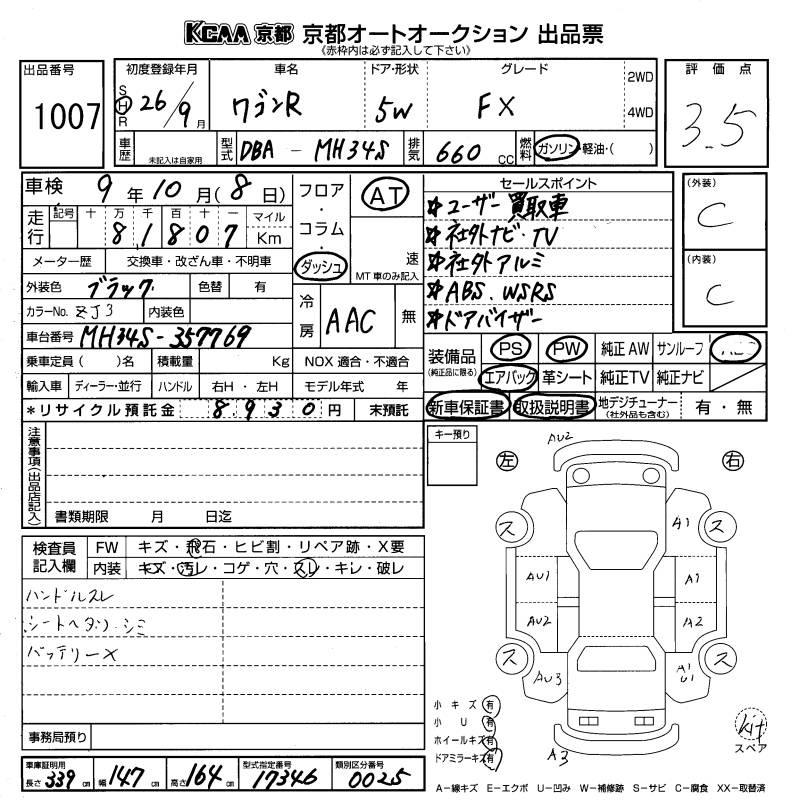 KCAA 京都 京都オートオークション 出品票
《赤枠内は必ず記入して下さい》
出品番号
1007
初度登録年月 車名 ドア・形状 グレード
S H R 26／9月 ワゴンR 5W FX 2WD 4WD
車歴 未記入は自家用 型式 DBA - MH34S 排気 660 CC 燃料 ガソリン・軽油・( )
評価点
3.5
車検 9年10月(8日)
走行 記号 十 万 千 百 十 一 マイル
8 1 8 0 7 Km
メーター歴 交換車・改ざん車・不明車
外装色 ブラック 色替 有
カラーNo. ZJ3 内装色
車台番号 MH34S-357769
乗車定員 ( )名 積載量 Kg
輸入車 ディーラー・並行 ハンドル 右H・左H
*リサイクル預託金 8,930円 未預託
フロア・コラム・ダッシュ
AT
速
MT車のみ記入
冷房 AAC 無
NOX 適合・不適合
モデル年式 年
セールスポイント
☆ユーザー買取車
☆社外ナビ・TV
☆社外アルミ
☆ABS.WSRS
☆ドアバイザー
(外装)
C
(内装)
C
装備品 (純正品に限る)
PS PW 純正AW サンルーフ
エアバック 革シート 純正TV 純正ナビ
新車保証書 取扱説明書 地デジチューナー (社外品も含む) 有・無
注意事項(出品店記入)
書類期限 月 日迄
キー預り
検査員記入欄
FW キズ・飛石・ヒビ割・リペア跡・X要
内装 キズ・汚レ・コゲ・穴・スレ・キレ・破レ
ハンドルスレ
シートヘタリ・シミ
バッテリーX
事務局預り
左 右
AU2
ス ス
A1
AU1 A1
AU2 A2
ス ス
AU3 A1 U1
A3
小キズ 有
小U 有
ホイールキズ 有
ドアミラーキズ 有
kit
スペア
車庫証明用
長さ 339cm 幅 147cm 高さ 164cm
型式指定番号 17346
類別区分番号 0025
A−線キズ E−エクボ U−凹み W−補修跡 S−サビ C−腐食 XX−取替済